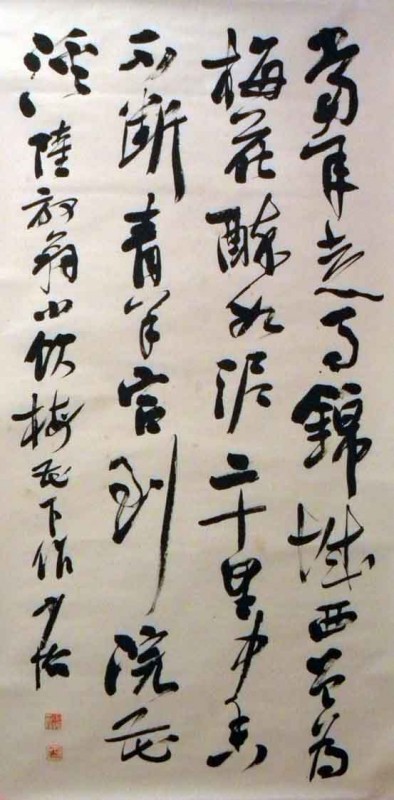 當年走馬錦城西曾為
梅花醉如泥二十里中香
不斷青羊宮到浣花
溪陸放翁小飲梅花下作